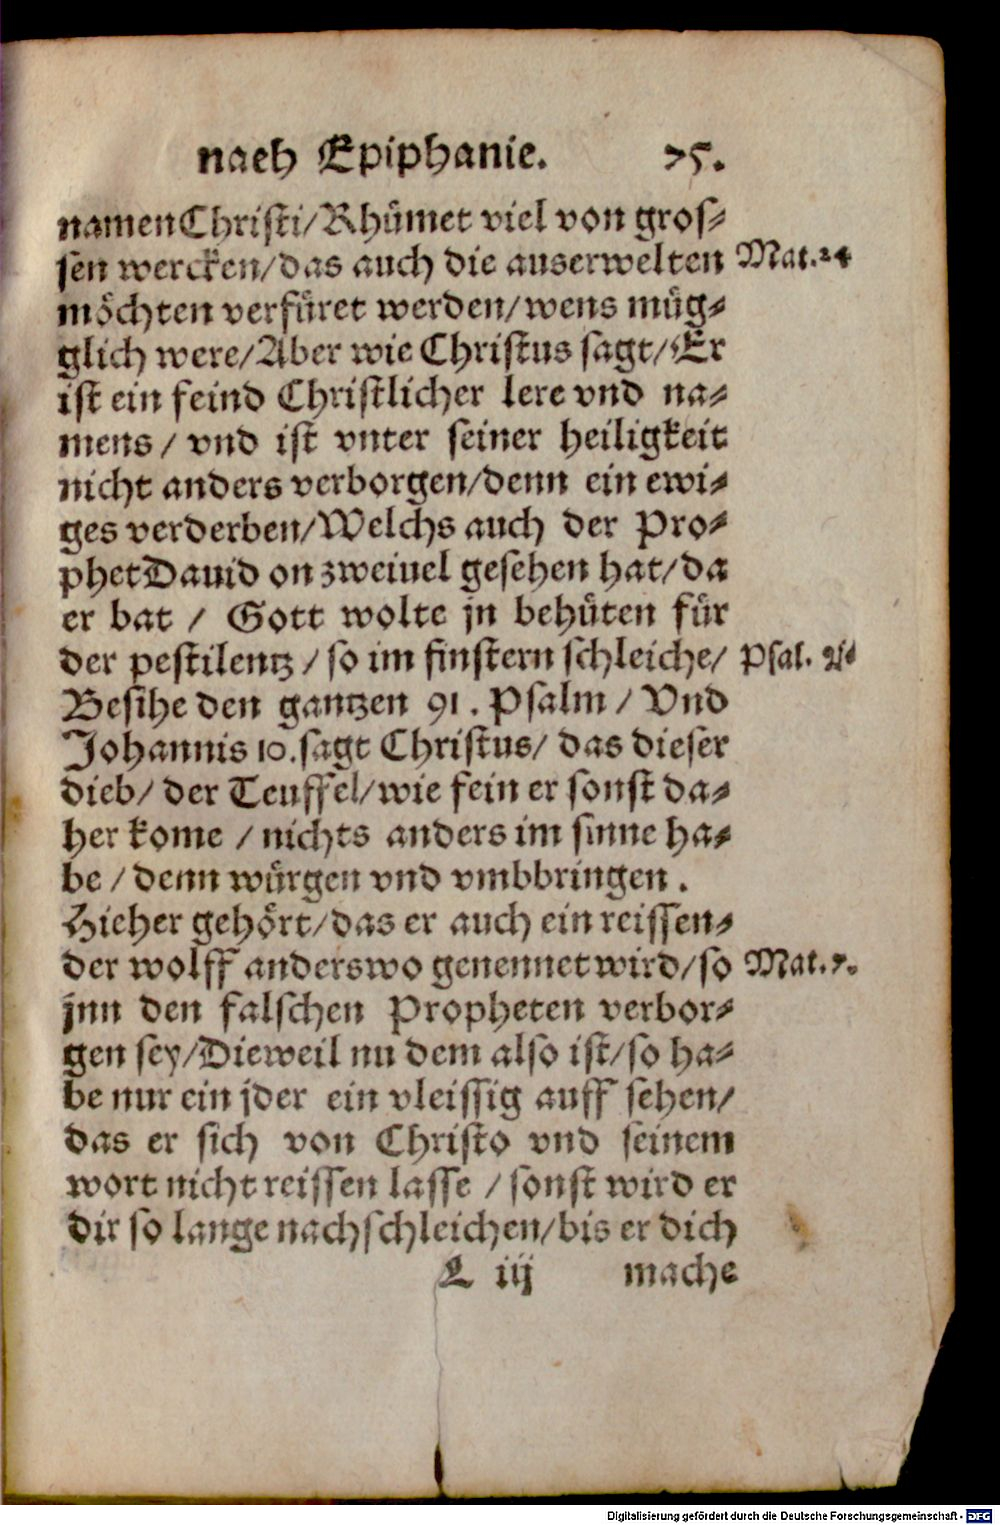 nach Epiphanie. 75.
namen Christi/Rhümet viel von gros⸗
sen wercken/das auch die auserwelten Mat.24
möchten verfüret werden/wens müg⸗
glich were/Aber wie Christus sagt/Er
ist ein feind Christlicher lere vnd na⸗
mens / vnd ist vnter seiner heiligkeit
nicht anders verborgen/denn ein ewi⸗
ges verderben/Welchs auch der Pro⸗
phet Dauid on zweiuel gesehen hat/da
er bat / Gott wolte jn behüten für
der pestilentz / so im finstern schleiche/ Psal. 91
Besihe den gantzen 91. Psalm / Vnd
Johannis 10. sagt Christus/ das dieser
dieb/ der Teuffel/wie fein er sonst da⸗
her kome / nichts anders im sinne ha⸗
be / denn würgen vnd vmbbringen.
Hieher gehört/das er auch ein reissen⸗
der wolff anderswo genennet wird/so Mat.7.
jnn den falschen Propheten verbor⸗
gen sey/Dieweil nu dem also ist/so ha⸗
be nur ein jder ein vleissig auff sehen/
das er sich von Christo vnd seinem
wort nicht reissen lasse / sonst wird er
dir so lange nachschleichen/bis er dich
L iij mache
Digitalisierung gefördert durch die Deutsche Forschungsgemeinschaft - DFG